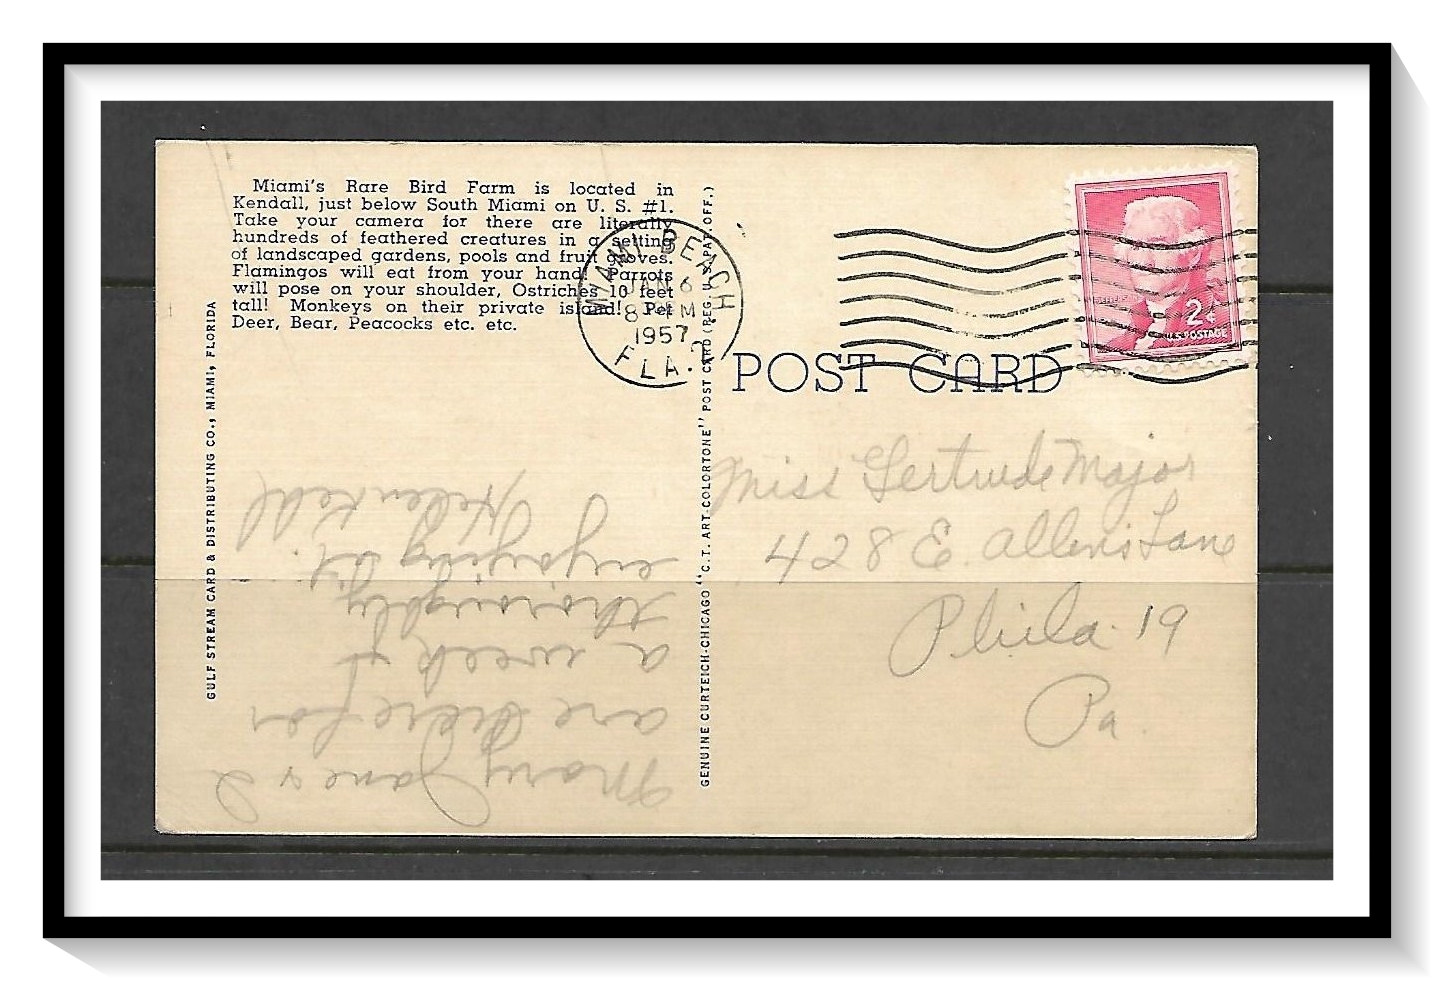 Miami's Rare Bird Farm is located in
Kendall, just below South Miami on U. S. #1.
Take your camera for there are literally
hundreds of feathered creatures in a setting
of landscaped gardens, pools and fruit groves.
Flamingos will eat from your hand! Parrots
will pose on your shoulder, Ostriches 10 feet
tall! Monkeys on their private island! Pet
Deer, Bear, Peacocks etc. etc.
GULF STREAM CARD & DISTRIBUTING CO., MIAMI, FLORIDA
GENUINE CURTEICH-CHICAGO "C.T. ART-COLORTONE" POST CARD (REG. U.S. PAT. OFF.)
MIAMI BEACH
JAN 6
8 PM
1957
FLA. 2
2¢
U.S. POSTAGE
POST CARD
Miss Gertrude Major
428 E. Allens Lane
Phila. 19
Pa.
Mary Jane & I
are here for
a week &
thoroughly
enjoying it.
Helen